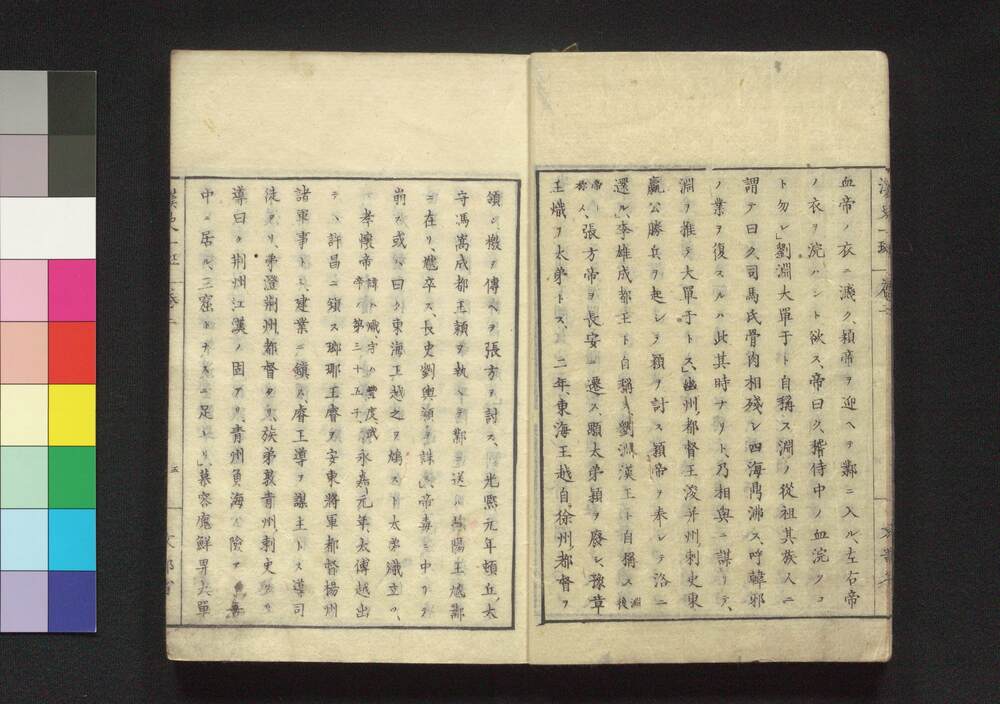 血帝ノ衣ニ濺ク、頴帝ヲ迎ヘテ鄴ニ入ル、左右帝
ノ衣ヲ浣ハント欲ス、帝曰ク、嵆侍中ノ血浣クコ
ト勿レ、劉淵大單于ト自稱ス淵ノ從祖其族人ニ
謂テ曰ク、司馬氏骨肉相殘シ四海鼎沸ス、呼韓邪
ノ業ヲ復スルハ此其時ナリト、乃相與ニ謀リテ、
淵ヲ推テ大單于トス、幽州都督王浚并州刺史東
嬴公騰兵ヲ起シテ頴ヲ討ス頴帝ヲ奉シテ洛ニ
還ル、李雄成都王ト自稱ス、劉淵漢王ト自稱ス淵後
帝ト稱ス、張方帝ヲ長安ニ遷ス、顒太弟頴ヲ廢シ、豫章
王熾ヲ太弟トス、二年、東海王越自、徐州都督ヲ
領シ、檄ヲ傳ヘテ張方ヲ討ス、光熙元年頓丘太
守馮嵩成都王頴ヲ執ヘテ鄴ニ送ル范陽王虓鄴
ニ在リ、虓卒ス、長史劉輿頴ヲ誅ス、帝毒ニ中リテ
崩ス或ハ曰ク東海王越之ヲ鴆スト太弟熾立ツ、
孝懷帝諱ハ熾字ハ豐度武帝ノ第二十五子、永嘉元年、太傅越出
テヽ許昌ニ鎮ス瑯琊王睿ヲ安東將軍都督揚州
諸軍事トシ、建業ニ鎮ス、睿王導ヲ謀主トス導司
徒タリ、弟澄荊州都督タリ、族弟敦青州刺史タリ
導曰ク荊州江漢ノ固アリ、青州負海ノ險アリ
中ニ居ル、三窟トナスニ足レリ、慕容廆鮮卑大單
五
文部省